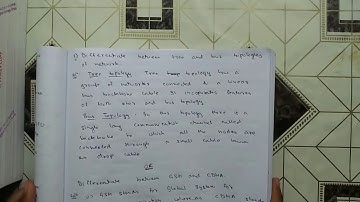 1) Differentiate between tree and bus topologies
of network.
Tree topology: Tree topology has a
group of networks connected to a linear
bus backbone cable. It incorporates features
of both star and bus topology.
Bus Topology: In bus topology there is a
single long communication channel called
backbone to which all the nodes are
connected through a small cable known
as drop cable.
OR
Differentiate between GSM and CDMA.
GSM stands for Global System for
whereas CDMA stands